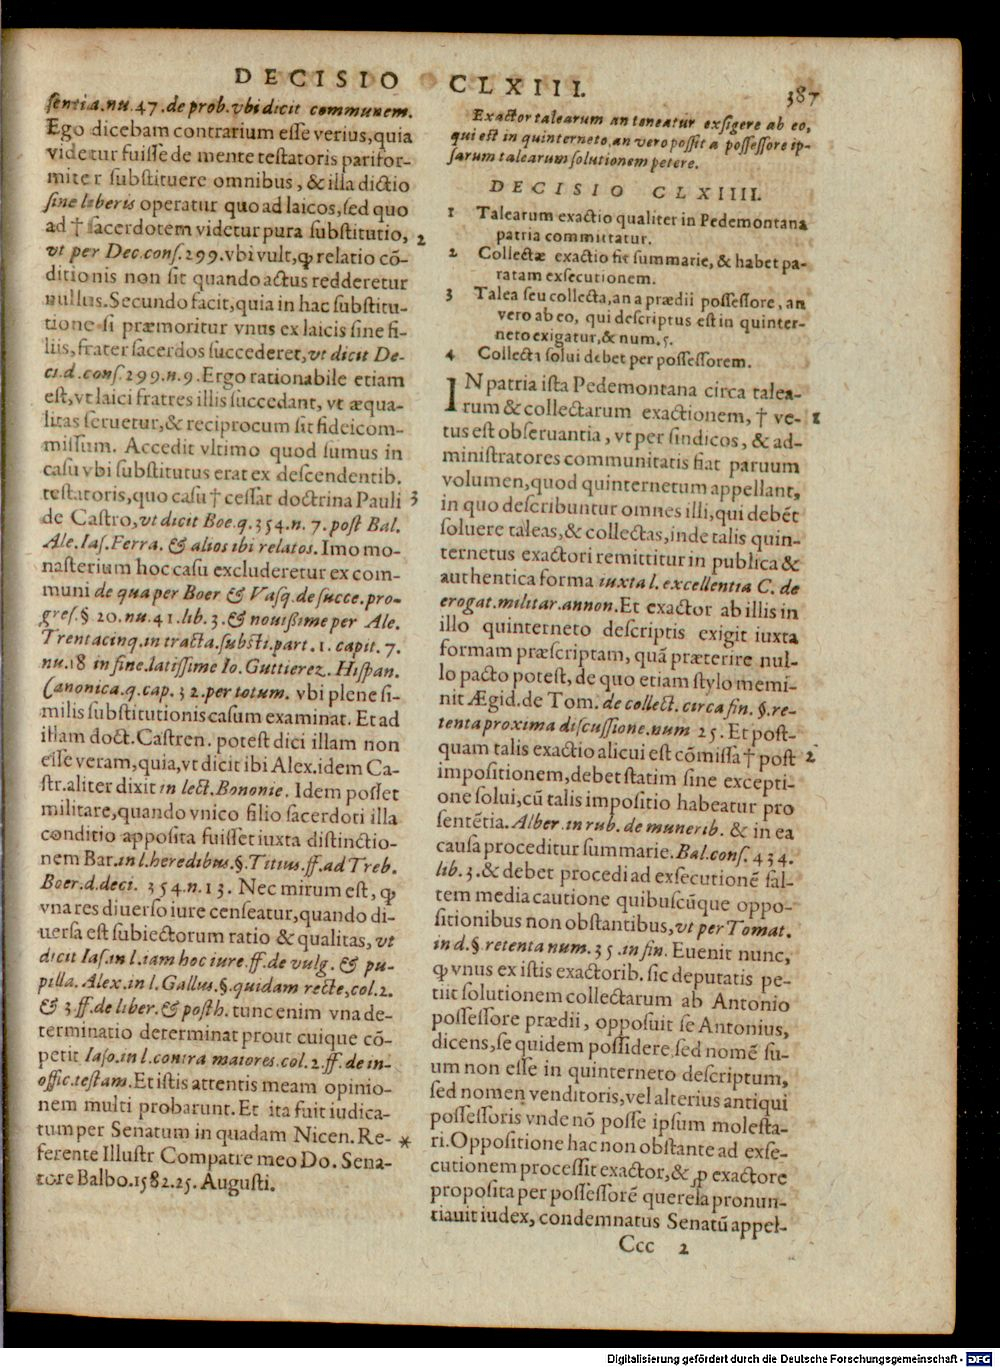 DECISIO CLXIII. 387
sentia.nu.47.de prob.vbi dicit communem.
Ego dicebam contrarium esse verius, quia
videtur fuisse de mente testatoris parifor-
miter substituere omnibus, & illa dictio
sine liberis operatur quo ad laicos, sed quo
ad † sacerdotem videtur pura substitutio, 2
vt per Dec.cons.299.vbi vult, ꝙ relatio cõ-
ditionis non sit quando actus redderetur
nullus. Secundo facit, quia in hac substitu-
tione si præmoritur vnus ex laicis sine fi-
liis, frater sacerdos succederet, vt dicit De-
ci.d.cons.299.n.9. Ergo rationabile etiam
est, vt laici fratres illis succedant, vt æqua-
litas seruetur, & reciprocum sit fideicom-
missum. Accedit vltimo quod sumus in
casu vbi substitutus erat ex descendentib.
testatoris, quo casu † cessat doctrina Pauli 3
de Castro, vt dicit Boe.q.354.n. 7. post Bal.
Ale.Ias.Ferra. & alios ibi relatos. Imo mo-
nasterium hoc casu excluderetur ex com-
muni de qua per Boer & Vasq.de succe.pro-
gres.§ 20.nu.41.lib. 3. & nouissime per Ale.
Trentacinq.in tracta.substi.part.1. capit. 7.
nu.18 in fine.latissime Io. Guttierez. Hispan.
Canonica.q.cap. 32.per totum. vbi plene si-
milis substitutionis casum examinat. Et ad
illam doct. Castren. potest dici illam non
esse veram, quia, vt dicit ibi Alex. idem Ca-
str. aliter dixit in lect. Bononie. Idem posset
militare, quando vnico filio sacerdoti illa
conditio apposita fuisset iuxta distinctio-
nem Bar. in l. heredibus.§.Titius.ff.ad Treb.
Boer.d.deci. 354.n.13. Nec mirum est, ꝙ
vna res diuerso iure censeatur, quando di-
uersa est subiectorum ratio & qualitas, vt
dicit Ias.in l.iam hoc iure.ff.de vulg. & pu-
pilla. Alex.in l. Gallus.§.quidam recte, col.2.
& 3.ff.de liber. & posth. tunc enim vna de-
terminatio determinat prout cuique cõ-
petit Iaso.in l.contra maiores.col.2.ff.de in-
offic.testam. Et istis attentis meam opinio-
nem multi probarunt. Et ita fuit iudica-
tum per Senatum in quadam Nicen. Re- *
ferente Illustr Compatre meo Do. Sena-
tore Balbo.1582.25. Augusti.
Exactor talearum an teneatur exsigere ab eo,
qui est in quinterneto, an vero possit a possessore ip-
sarum talearum solutionem petere.
DECISIO CLXIIII.
1 Talearum exactio qualiter in Pedemontana
patria committatur.
2 Collectæ exactio fit summarie, & habet pa-
ratam exsecutionem.
3 Talea seu collecta, an a prædii possessore, an
vero ab eo, qui descriptus est in quinter-
neto exigatur, & num.5.
4 Collecta solui debet per possessorem.
IN patria ista Pedemontana circa talea-
rum & collectarum exactionem, † ve- 1
tus est obseruantia, vt per sindicos, & ad-
ministratores communitatis fiat paruum
volumen, quod quinternetum appellant,
in quo describuntur omnes illi, qui debẽt
soluere taleas, & collectas, inde talis quin-
ternetus exactori remittitur in publica &
authentica forma iuxta l. excellentia C. de
erogat.militar.annon. Et exactor ab illis in
illo quinterneto descriptis exigit iuxta
formam præscriptam, quã præterire nul-
lo pacto potest, de quo etiam stylo memi-
nit Ægid. de Tom. de collect. circa fin. §.re-
tenta proxima discussione.num 25. Et post-
quam talis exactio alicui est cõmissa † post 2
impositionem, debet statim sine excepti-
one solui, cũ talis impositio habeatur pro
sentẽtia. Alber.in rub. de munerib. & in ea
causa proceditur summarie. Bal.cons.434.
lib. 3. & debet procedi ad exsecutionẽ sal-
tem media cautione quibuscũque oppo-
sitionibus non obstantibus, vt per Tomat.
in d.§.retenta num. 35.in fin. Euenit nunc,
ꝙ vnus ex istis exactorib. sic deputatis pe-
tiit solutionem collectarum ab Antonio
possessore prædii, opposuit se Antonius,
dicens, se quidem possidere, sed nomẽ su-
um non esse in quinterneto descriptum,
sed nomen venditoris, vel alterius antiqui
possessoris vnde nõ posse ipsum molesta-
ri. Oppositione hac non obstante ad exse-
cutionem processit exactor, & ꝓ exactore
proposita per possessorẽ querela pronun-
tiauit iudex, condemnatus Senatũ appel-
Ccc 2
Digitalisierung gefördert durch die Deutsche Forschungsgemeinschaft - DFG